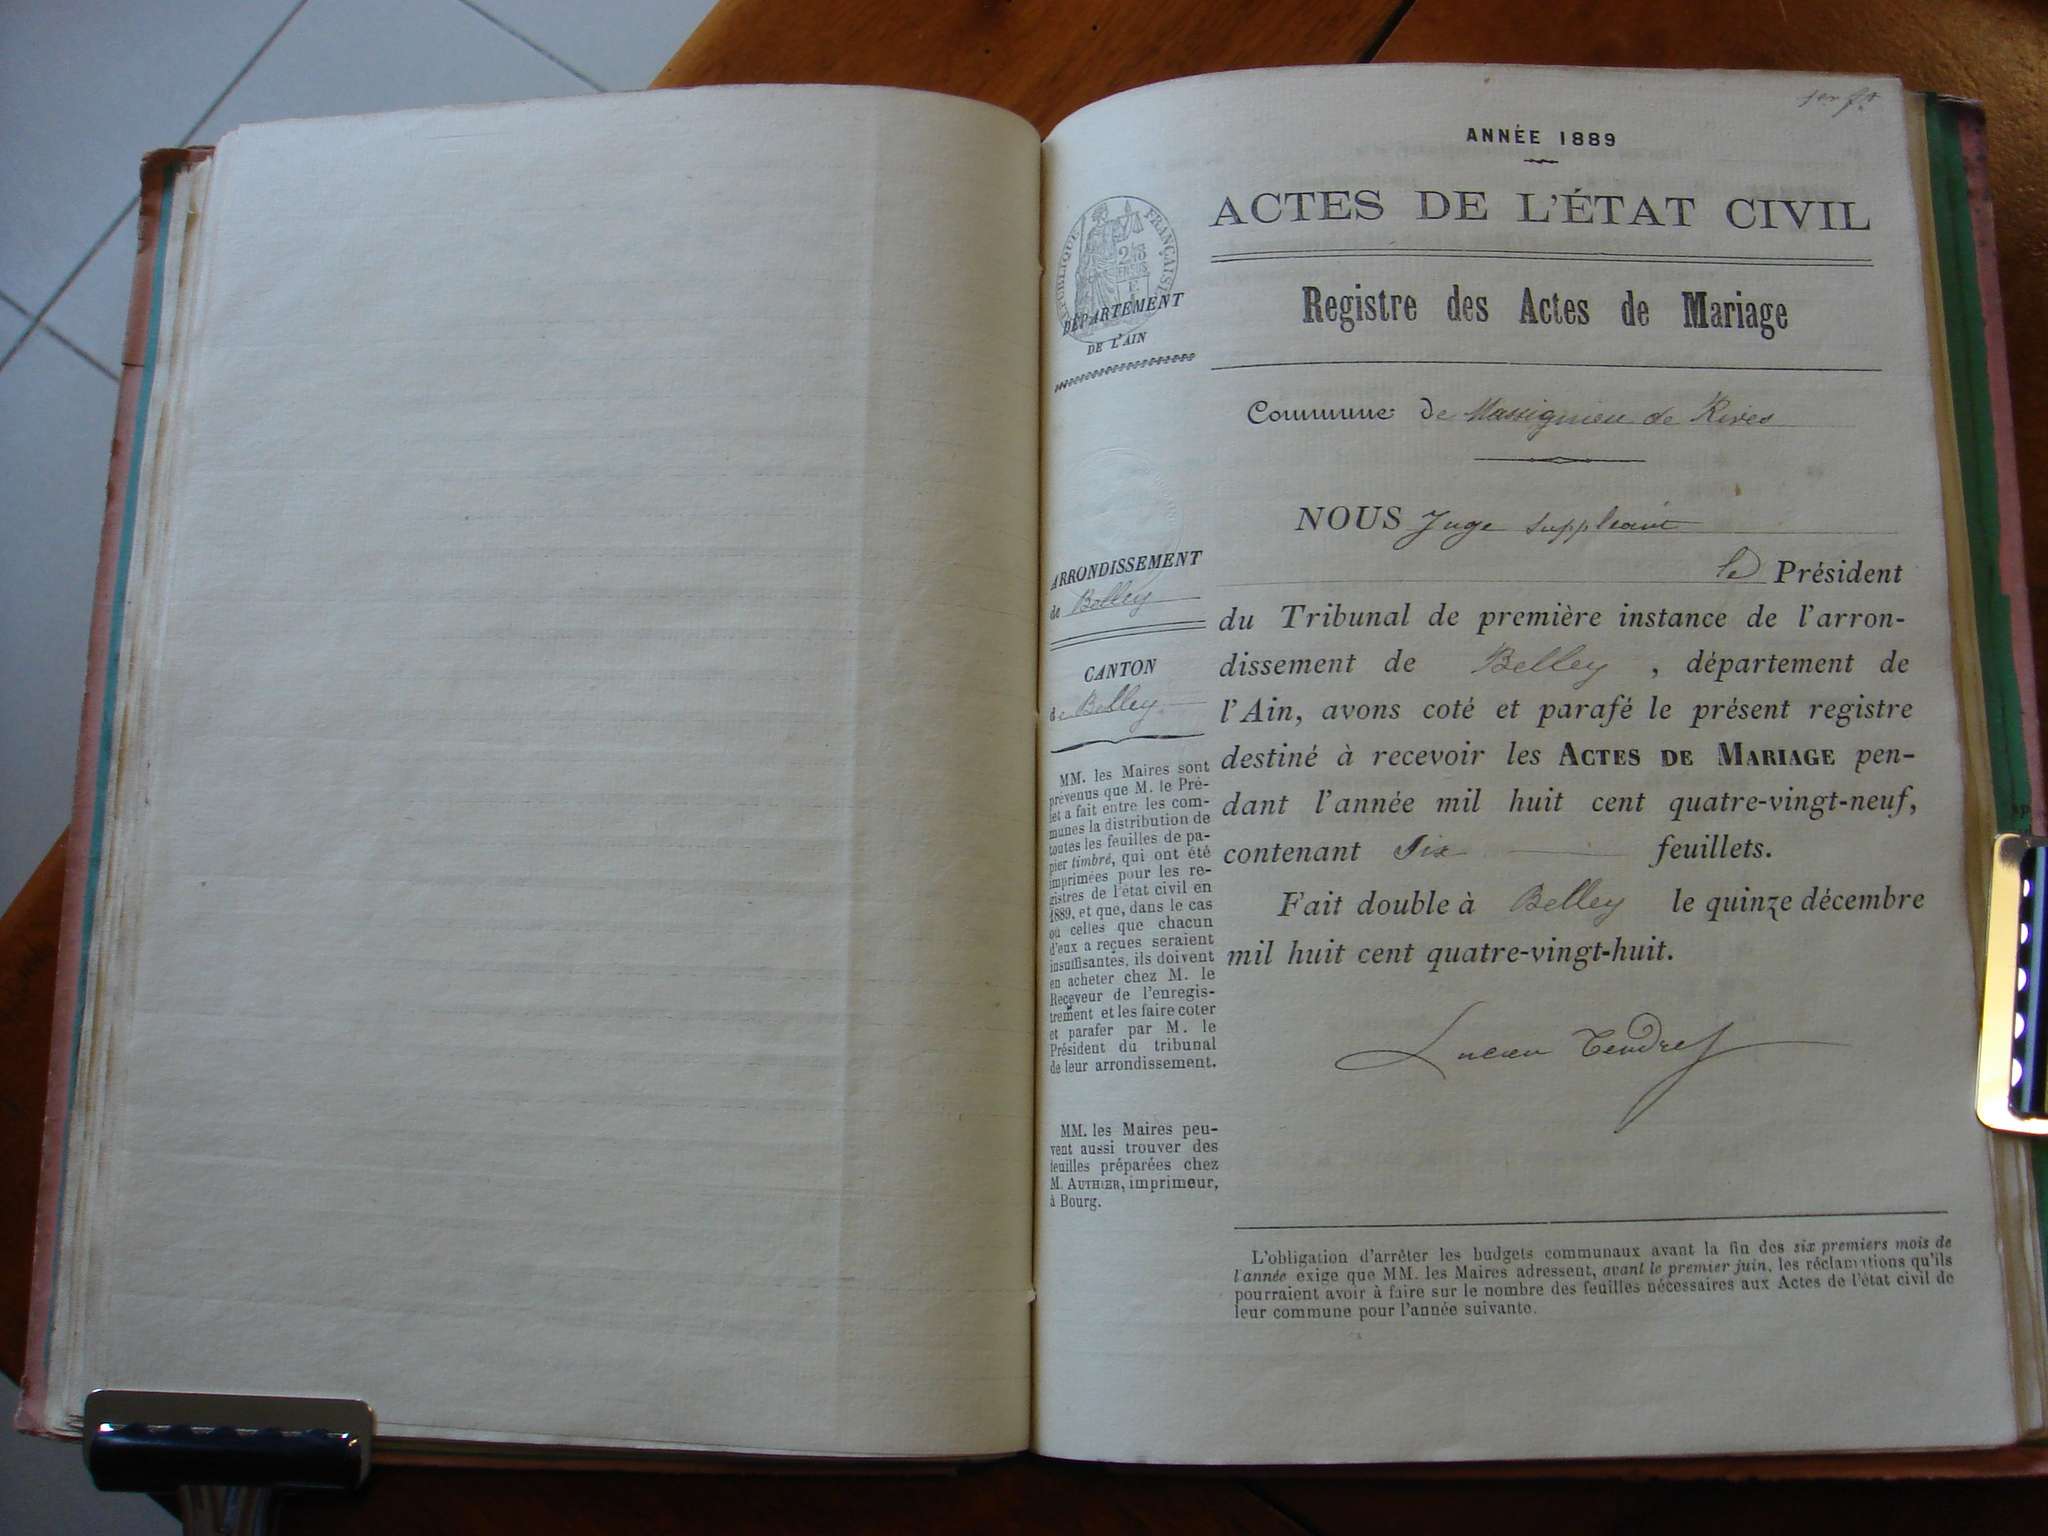 1er ft
ANNÉE 1889
ACTES DE L'ÉTAT CIVIL
Registre des Actes de Mariage
Commune de Massignieu de Rives
NOUS Juge suppléant
le Président
du Tribunal de première instance de l'arron-
dissement de Belley, département de
l'Ain, avons coté et parafé le présent registre
destiné à recevoir les ACTES DE MARIAGE pen-
dant l'année mil huit cent quatre-vingt-neuf,
contenant six feuillets.
Fait double à Belley le quinze décembre
mil huit cent quatre-vingt-huit.
Lucien Tendret
RÉPUBLIQUE FRANÇAISE
DÉPARTEMENT
DE L'AIN
ARRONDISSEMENT
de Belley
CANTON
de Belley
MM. les Maires sont
prévenus que M. le Pré-
fet a fait entre les com-
munes la distribution de
toutes les feuilles de pa-
pier timbré, qui ont été
imprimées pour les re-
gistres de l'état civil en
1889, et que, dans le cas
où celles que chacun
d'eux a reçues seraient
insuffisantes, ils doivent
en acheter chez M. le
Receveur de l'enregis-
trement et les faire coter
et parafer par M. le
Président du tribunal
de leur arrondissement.
MM. les Maires peu-
vent aussi trouver des
feuilles préparées chez
M. AUTHIER, imprimeur,
à Bourg.
L'obligation d'arrêter les budgets communaux avant la fin des six premiers mois de
l'année exige que MM. les Maires adressent, avant le premier juin, les réclamations qu'ils
pourraient avoir à faire sur le nombre des feuilles nécessaires aux Actes de l'état civil de
leur commune pour l'année suivante.